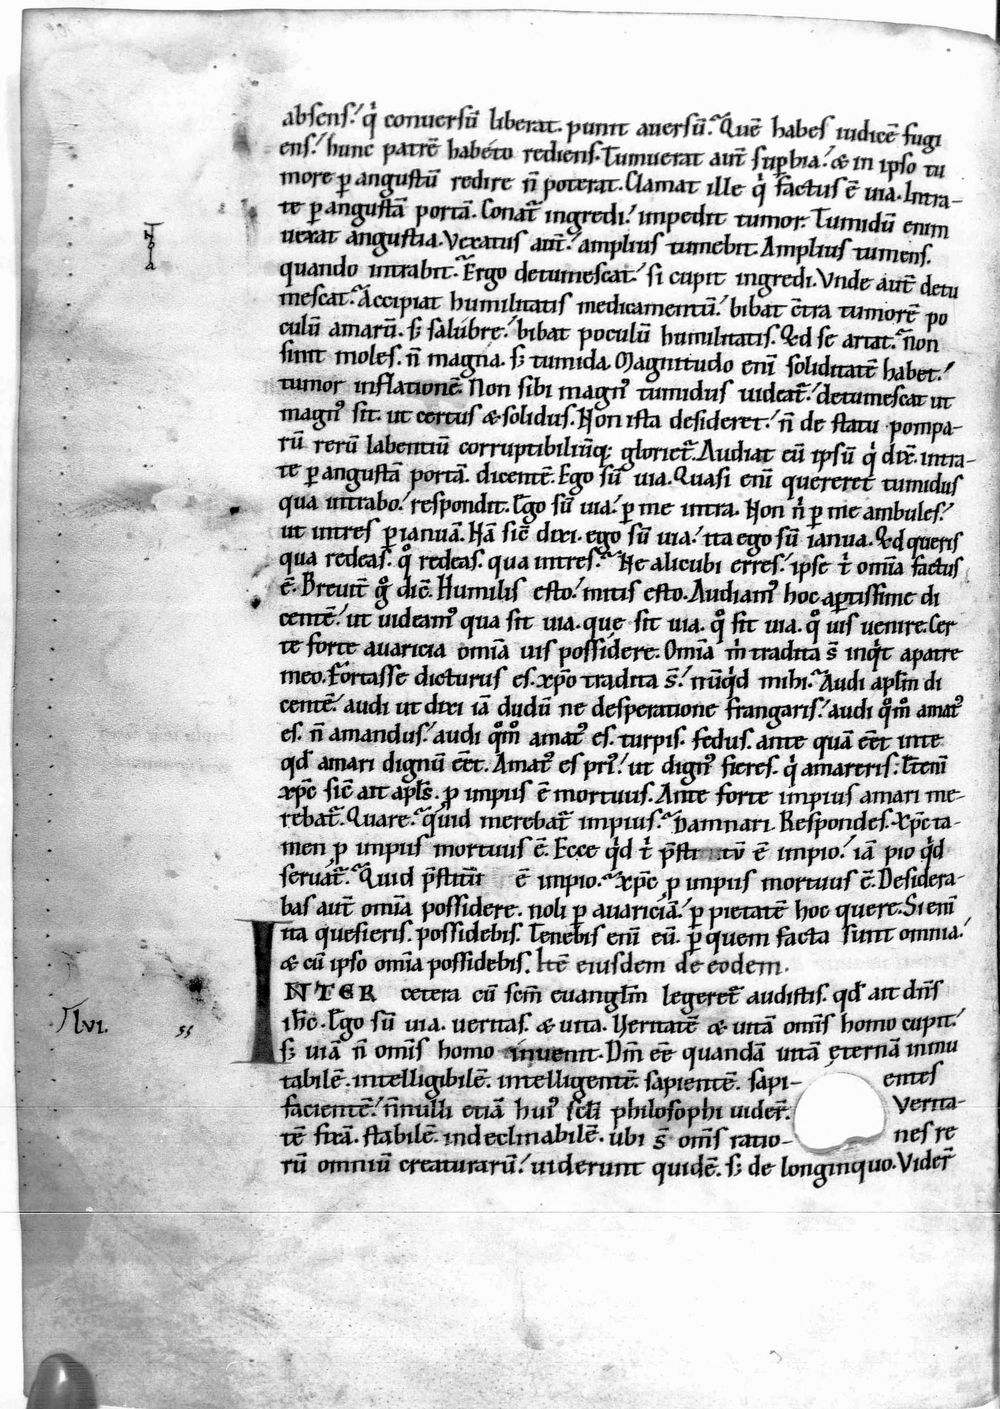 absens! q̇ conuersū liberat. punit auersū. Quē habes iudicē fugi
ens! hunc patrē habeto rediens. Tumuerat aut̄ sup̄bia! & in ipso tu
more p̱ angustū redire n̄ poterat. Clamat ille q̇ factus ē uia. Intra-
te p̱ angustā portā. Conat̄ ingredi! impedit tumor. Tumidū enim
uexat angustia. Vexatus aut̄! amplius tumebit. Amplius tumens.
quando intrabit. Ergo detumescat! si cupit ingredi. Vnde aut̄ detu
mescat. Accipiat humilitatis medicamentū! bibat c̄tra tumorē po
culū amarū. s; salubre! bibat poculū humilitatis. Qd se artat. non
sinit moles. n̄ magna. s; tumida. Magnitudo enī soliditatē habet!
tumor inflationē. Non sibi magnꝰ tumidus uideat̄! detumescat ut
magnꝰ sit. ut certus & solidus. Non ista desideret! n̄ de statu pompa-
rū rerū labentiū corruptibiliūq; gloriet̄. Audiat eū ipsū q̇ dix̄. intra-
te p̱ angustā portā. dicentē. Ego sū uia. Quasi enī quereret tumidus
qua intrabo! respondit. Ego sū uia! p̱ me intra. Non n̄ p̱ me ambules!
ut intres p̱ ianuā. Nā sic̄ dixi. ego sū uia! ita ego sū ianua. Qd queris
qua redeas. qͦ redeas. qua intres. Ne alicubi erres! ipse t̄ omīa factus
ē. Breuit̄ gͦ dic̄. Humilis esto! mitis esto. Audiamꝰ hoc ap̱tissime di
centē! ut uideamꝰ qua sit uia. que sit uia. qͦ sit uia. qͦ uis uenire. Cer
te forte auaricia omīa uis possidere. Omīa m̄ tradita s̄ inq̇t a patre
meo. Fortasse dicturus es. xp̄o tradita s̄! nūq̇d mihi. Audi apl̄m di
centē! audi ut dixi iā dudū ne desperatione frangaris! audi qͦm̄ amatꝰ
es. n̄ amandus! audi qͦm̄ amatꝰ es. turpis. fedus. ante quā eēt in te
qd̄ amari dignū eēt. Amatꝰ es priꝰ! ut dignꝰ fieres. q̇ amareris. Et enī
xp̄c sic̄ ait apl̄s. p̱ impiis ē mortuus. Ante forte impius amari me-
rebat̄. Quare. quid merebat̄ impius. Damnari. Respondes. Xp̄c ta-
men p̱ impiis mortuus ē. Ecce q̇d t̄ p̄sti tū ē impio! iā pio q̇d
seruat̄. Quid p̄stitū ē impio. xp̄c p̱ impiis mortuus ē. Desidera-
bas aut̄ omīa possidere. noli p̱ auariciā! p̱ pietatē hoc quere. Si enī
ita quesieris. possidebis. Tenebis enī eū. p̱ quem facta sunt omnia!
& cū ipso omīa possidebis. Itē eiusdem de eodem.
INTER cetera cū sc̄m euangl̄m legeret̄ audistis. qd̄ ait dn̄s
ih̄c. Ego sū uia. ueritas. & uita. Veritatē & uitā omīs homo cupit!
s; uiā n̄ omīs homo inuenit. Dm̄ eē quandā uitā ęternā inmu
tabilē. intelligibilē. intelligentē. sapientē. sapi- entes
facientē! n̄nulli etiā huiꝰ sc̄li philosophi uider̄. Verita-
tē fixā. stabilē. indeclinabilē. ubi s̄ omīs ratio- nes re
rū omniū creaturarū! uiderunt quidē. s; de longinquo. Vider̄
lvi. ss